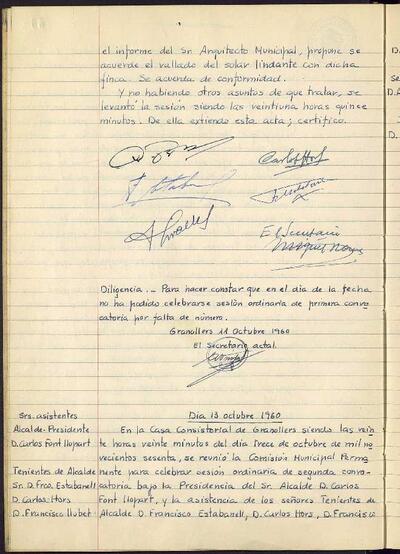 el informe del Sr. Arquitecto Municipal, propone se
acuerde el vallado del solar lindante con dicha
finca. Se acuerda de conformidad.
Y no habiendo otros asuntos de que tratar, se
levantó la sesión siendo las veintiuna horas quince
minutos. De ella extiendo esta acta; certifico.
Carlos Hors
El Secretario
Diligencia.- Para hacer constar que en el día de la fecha
no ha podido celebrarse sesión ordinaria de primera convo-
catoria por falta de número.
Granollers 11 Octubre 1960
El Secretario actal.
Srs. asistentes
Alcalde-Presidente
D. Carlos Font Llopart
Tenientes de Alcalde
Sr. D. Frco. Estabanell
D. Carlos Hors
D. Francisco Llobet
Día 13 octubre 1960
En la Casa Consistorial de Granollers siendo las vein-
te horas veinte minutos del día trece de octubre de mil no-
vecientos sesenta, se reunió la Comisión Municipal Perma-
nente para celebrar sesión ordinaria de segunda convo-
catoria bajo la Presidencia del Sr. Alcalde D. Carlos
Font Llopart, y la asistencia de los señores Tenientes de
Alcalde D. Francisco Estabanell, D. Carlos Hors, D. Francisco